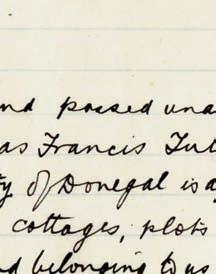 nd passed una
as Francis Tul
ty of Donegal is a
cottages, plots
d belonging to us